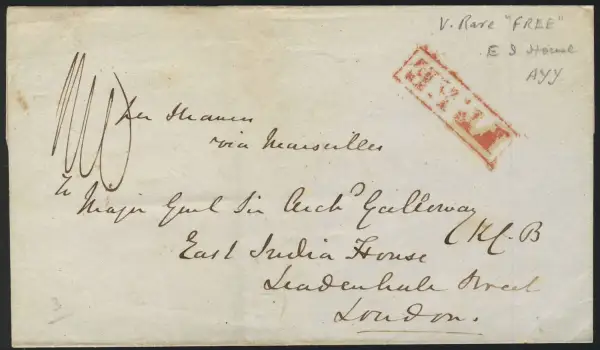 V. Rare "FREE"
E I House
AYY
per Steamer
via Marseilles
To
Major Genl Sir Archd Galloway
K.C.B
East India House
Leadenhall Street
London.
3